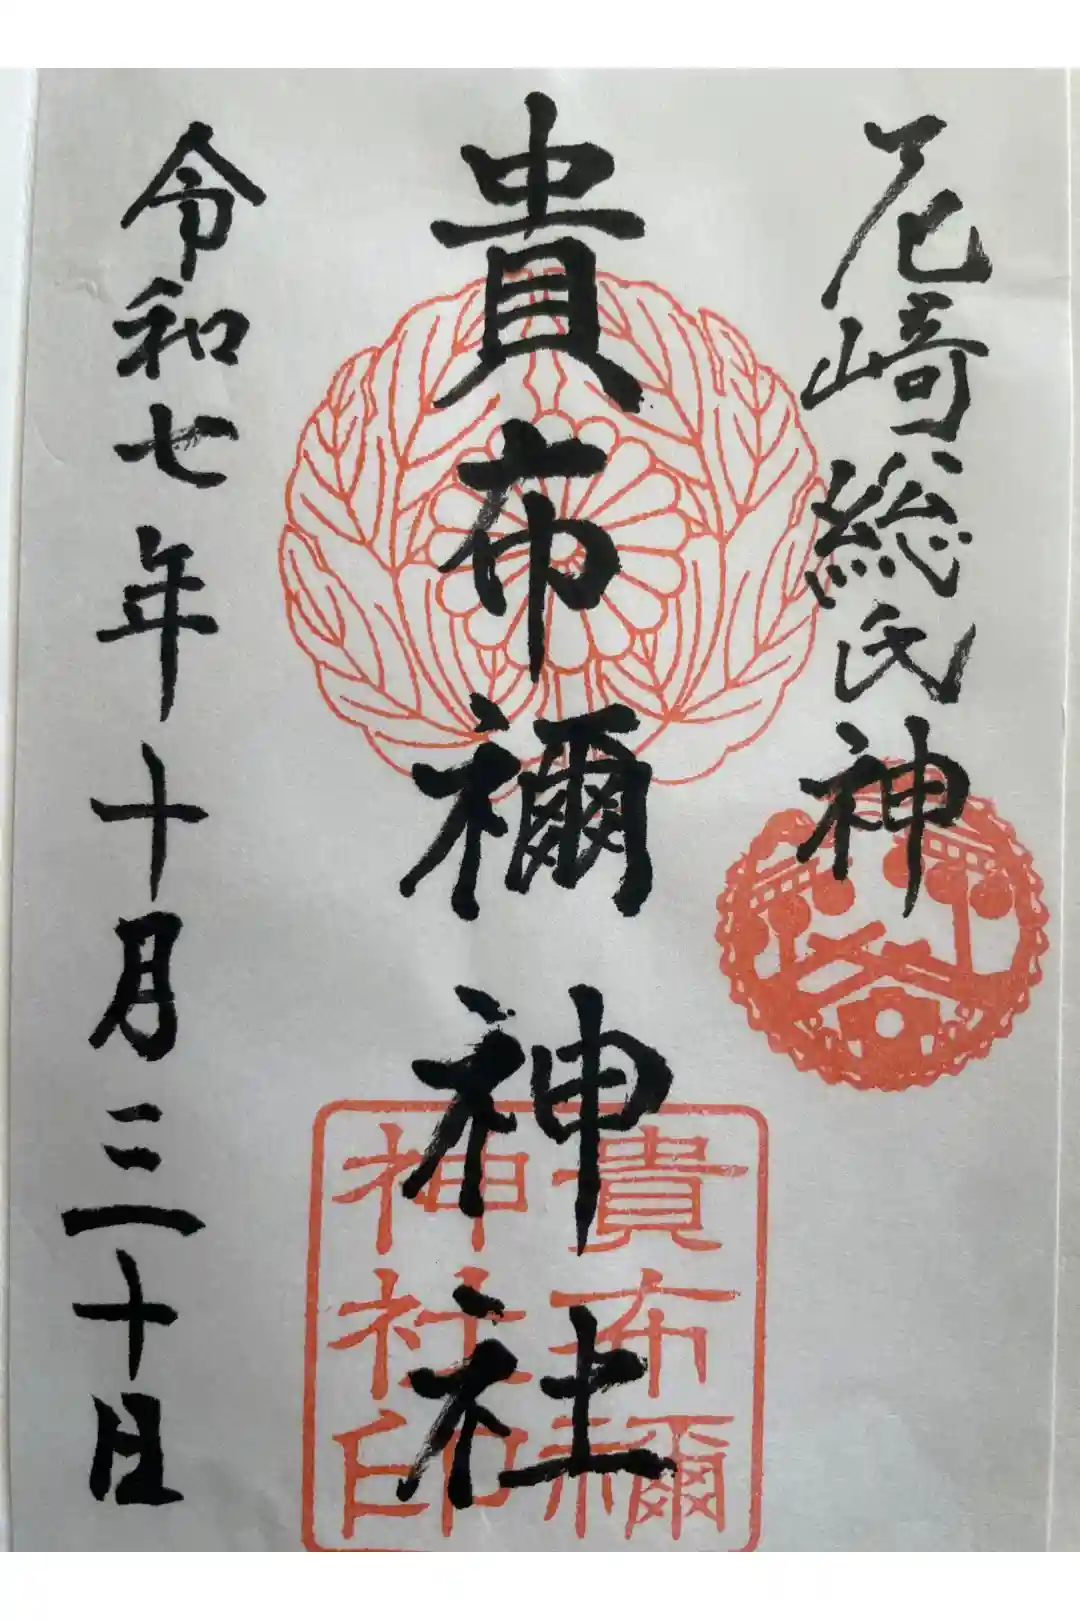 尼崎総氏神
貴布禰神社
令和七年十月三十日
貴布禰
神社印